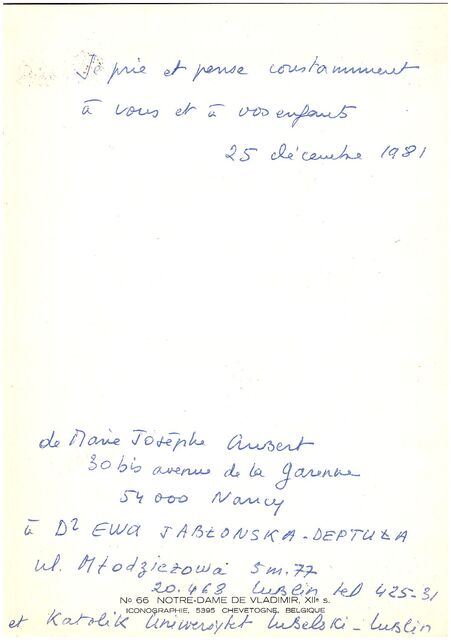 Je prie et pense constamment
à vous et à vos enfants
25 décembre 1981
de Marie Josèphe Aubert
30 bis avenue de la Garenne
54 000 Nancy
à Dr EWA JABŁONSKA-DEPTUŁA
ul. Młodzieżowa 5 m. 77
20.468 Lublin tel 425-31
No 66 NOTRE-DAME DE VLADIMIR, XIIe s.
ICONOGRAPHIE, 5395 CHEVETOGNE, BELGIQUE
et Katolik Uniwersytet Lubelski - Lublin